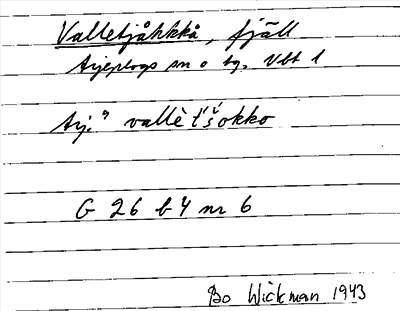 Valletjåhkkå, fjäll
Arjeplogs sn o tg. Vbt l
Arj. vallè t'š́okko
G 26 b 4 nr 6
Bo Wickman 1943